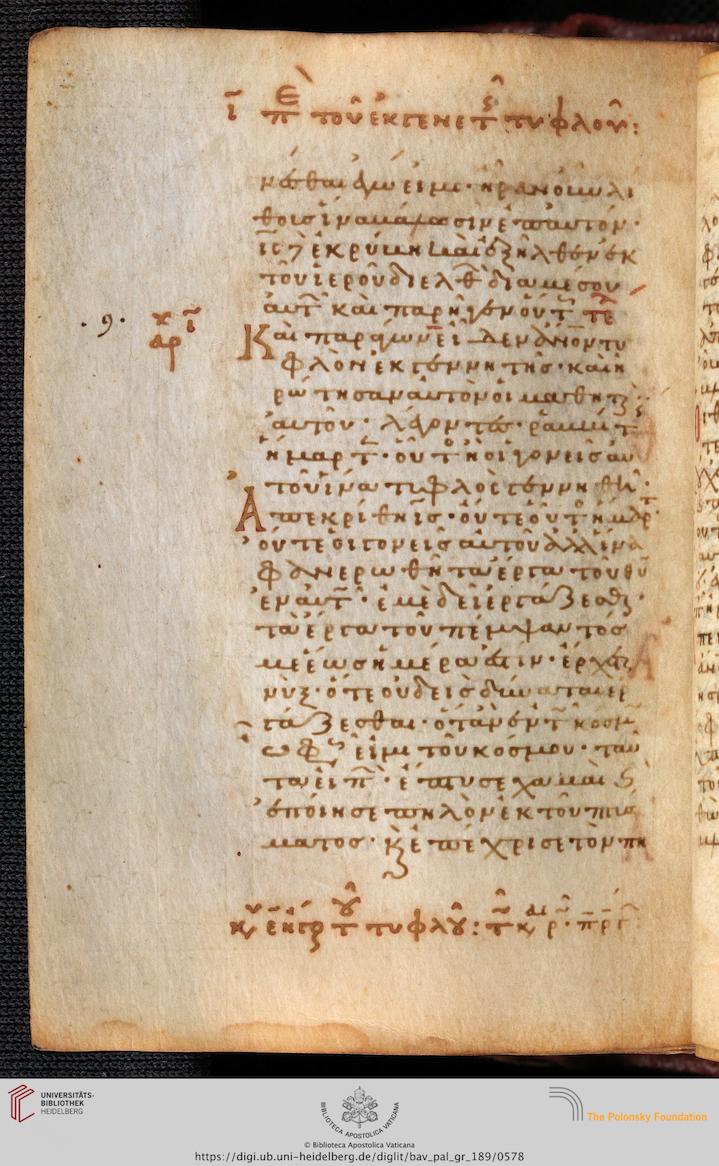 ῑ π̄ε τοῦ ἐκ γενετῆς τυφλοῦ:
γενέσθαι ἐγώ εἰμι· ἦραν οὖν λί
θους ἵνα βάλωσιν ἐπ' αὐτόν·
ῑς̄ δὲ ἐκρύβη καὶ ἐξῆλθεν ἐκ
τοῦ ἱεροῦ διελθ διὰ μέσου
αὐτ καὶ παρῆγεν οὕτ τε
Καὶ παράγων εἶδεν ἄνον τυ
φλὸν ἐκ γεννητῆς· καὶ ἠ
ρώτησαν αὐτὸν οἱ μαθητ
αὐτοῦ· λέγοντες· ῥαββί τ
ἥμαρτ· οὗτ ἢ οἱ γονεῖς αὐ
τοῦ ἵνα τυφλὸς γεννηθῇ·
Ἀπεκρίθη ῑς̄· οὔτε οὗτ ἥμαρ
οὔτε οἱ γονεῖς αὐτοῦ ἀλλ' ἵνα
φανερωθῇ τὰ ἔργα τοῦ θῡ
ἐν αὐτ· ἐμὲ δεῖ ἐργάζεσθ
τὰ ἔργα τοῦ πέμψαντός
με ἕως ἡμέρα ἐστίν· ἔρχετ
νὺξ· ὅτε οὐδεὶς δύναται ἐρ
γάζεσθαι· ὅταν ἐν τ κοσμ
ὦ φῶς εἰμι τοῦ κόσμου· ταῦ
τα εἰπ· ἔπτυσε χαμαὶ κ
ἐποίησε πηλὸν ἐκ τοῦ πτύσ
ματος· κ ἐπέχρισε τὸν πη
·9·
κ ῑ
αρ
τυφλοῦ:
UNIVERSITÄTS-
BIBLIOTHEK
HEIDELBERG
BIBLIOTECA APOSTOLICA VATICANA
The Polonsky Foundation
© Biblioteca Apostolica Vaticana
https://digi.ub.uni-heidelberg.de/diglit/bav_pal_gr_189/0578